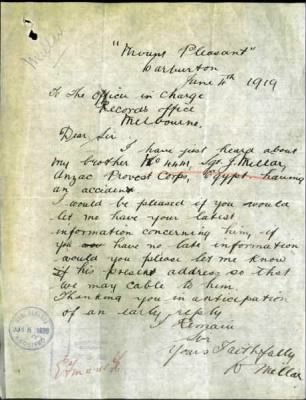 Mellar
"Mount Pleasant"
Warburton
June 4th 1919
To The Officer in Charge
Records Office
Melbourne.
Dear Sir
I have just heard about
my brother No Sgt. J. Mellar,
Anzac Provost Corps, Egypt having
an accident
I would be pleased if you would
let me have your latest
information concerning him, if
you have no late information
would you please let me know
if his present address so that
we may cable to him.
Thanking you in anticipation
of an early reply
I Remain
Sir
Yours Faithfully
Mellar